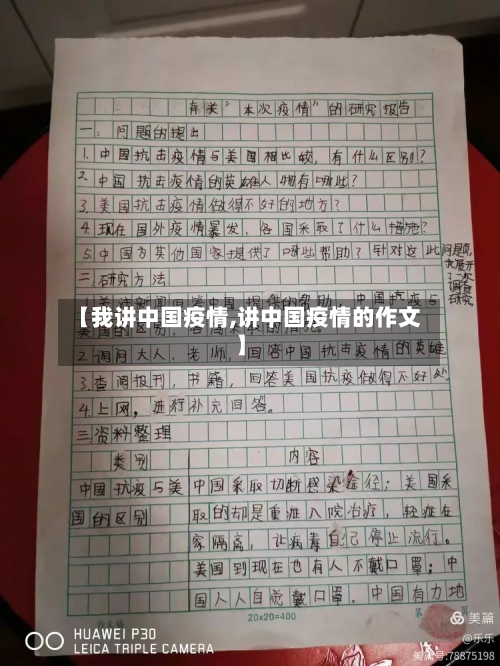 有关“本次疫情”的研究报告
一、问题的提出
1.中国抗击疫情与美国相比较,有什么区别?
2.中国抗击疫情的英雄人物有哪些?
3.美国抗击疫情做得不好的地方?
4.现在国外疫情暴发,各国采取了什么措施?
5.中国为其他国家提供了哪些帮助?针对这此问题
我展开了一次调查研究
二、研究方法
【我讲中国疫情,讲中国疫情的作文
】
2.调问大人、老师,回答中国抗击疫情的英雄
3.查阅报刊,书籍,回答美国抗疫做得不好处
4.上网,进行补充回答。
三、资料整理
类别 内容
中国抗疫与美国的区别
中国采取切断感染途径;美国采
取的却是重症入院治疗,轻症在
家隔离,让病毒自己停止流行。
美国到现在也有人不戴口罩;中
国人人自觉戴口罩。中国有力地
20x20=400
HUAWEI P30
LEICA TRIPLE CAMERA
美篇
@乐乐
美篇号:78875198